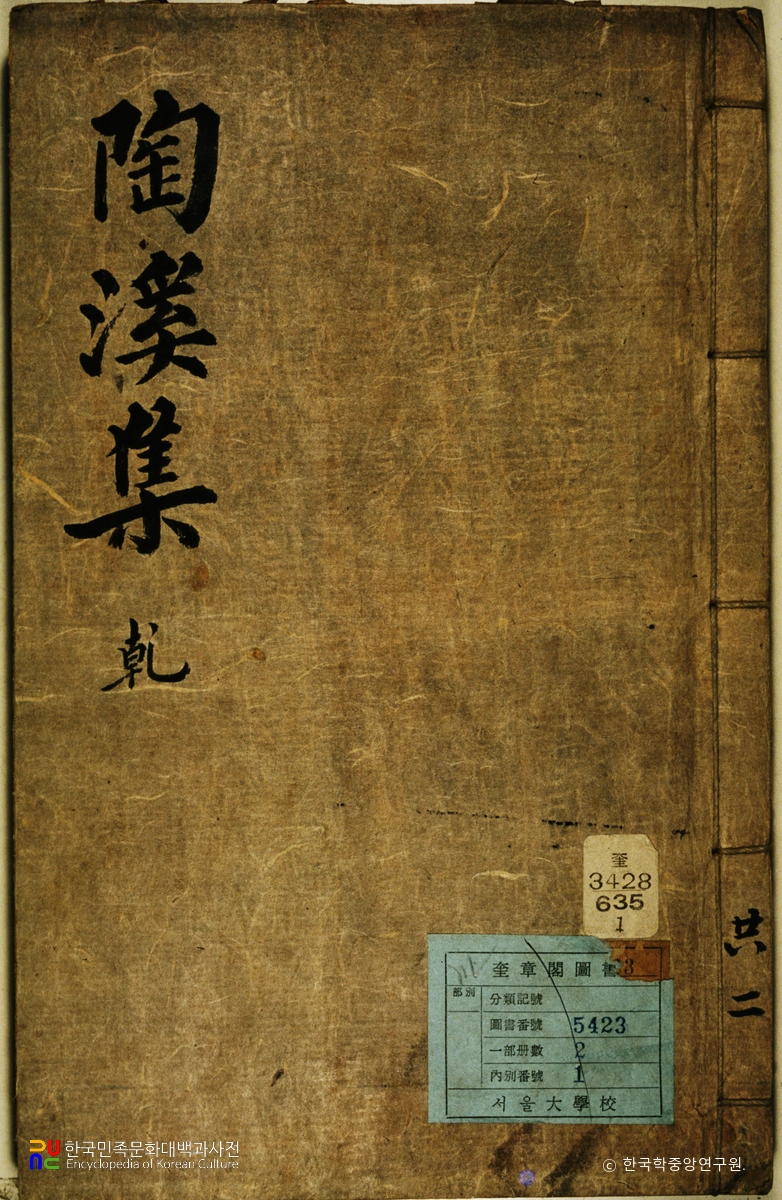 陶溪集
乾
共二
奎
3428
635
1
奎章閣圖書
3
部別
分類記號
圖書番號 5423
一部册數 2
內別番號 1
서울大學校
한국민족문화대백과사전
Encyclopedia of Korean Culture
ⓒ 한국학중앙연구원.